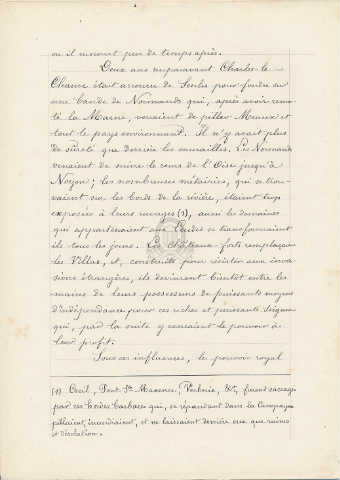 où il mourut peu de temps après.
Deux ans auparavant Charles-le-
Chauve était accouru de Senlis pour fondre sur
une bande de Normands qui, après avoir remon-
té la Marne, venaient de piller Meaux et
tout le pays environnant. Il n'y avait plus
de sûreté que derrière les murailles. Les Normands
venaient de suivre le cours de l'Oise jusqu'à
Noyon; les nombreuses métairies, qui se trou-
vaient sur les bords de la rivière, étaient trop
exposées à leurs ravages (1), aussi les domaines
qui appartenaient aux Leudes se transformaient
ils tous les jours. Les Châteaux-forts remplaçaient
les Villas, et, construits pour résister aux inva-
sions étrangères, ils devinrent bientôt entre les
mains de leurs possesseurs de puissants moyens
d'indépendance pour ces riches et puissants Seigneurs
qui, par la suite y exerçaient le pouvoir à
leur profit.
Sous ces influences, le pouvoir royal
(1) Creil, Pont-Ste Maxence, Verberie, &c, furent saccagés
par ces hordes barbares qui, se répandant dans la Campagne
pillaient, incendiaient, et ne laissaient derrière eux que ruines
et désolation.